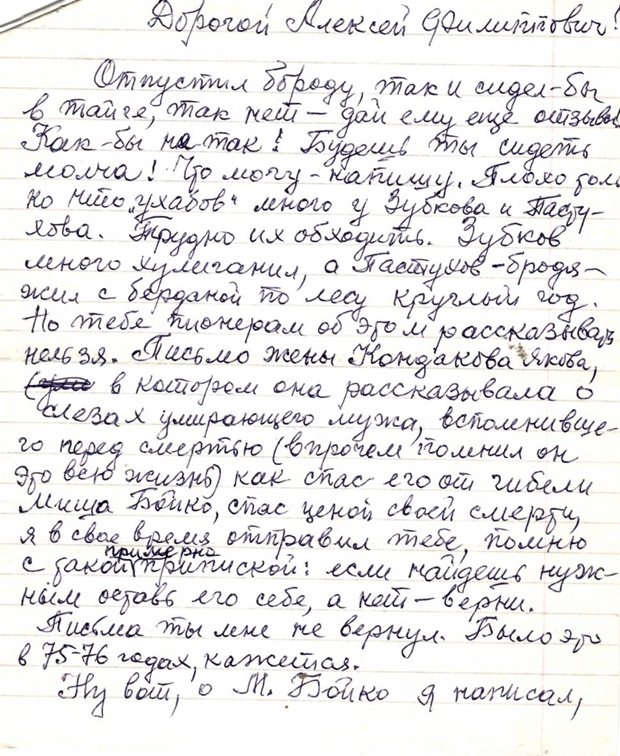 Дорогой Алексей Филиппович!
Отпустил бороду, так и сидел-бы
в тайге, так нет — дай ему еще отзывы!
Как-бы не так! Будешь ты сидеть
молча! Что могу - напишу. Плохо толь
ко что „ухабов“ много у Зубкова и Пасту-
хова. Трудно их обходить. Зубков
много хулиганил, а Пастухов - бродя-
жил с берданой по лесу круглый год.
Но тебе пионерам об этом рассказывать
нельзя. Письмо жены Кондакова Якова,
в котором она рассказывала о
слезах умирающего мужа, вспомнивше-
го перед смертью (впрочем помнил он
это всю жизнь) как спас его от гибели
Миша Бойко, спас ценой своей смерти,
я в свое время отправил тебе, помню
с такой примерно припиской: если найдешь нуж-
ным оставь его себе, а нет — верни.
Письма ты мне не вернул. Было это
в 75-76 годах, кажется.
Ну вот, о М. Бойко я написал,